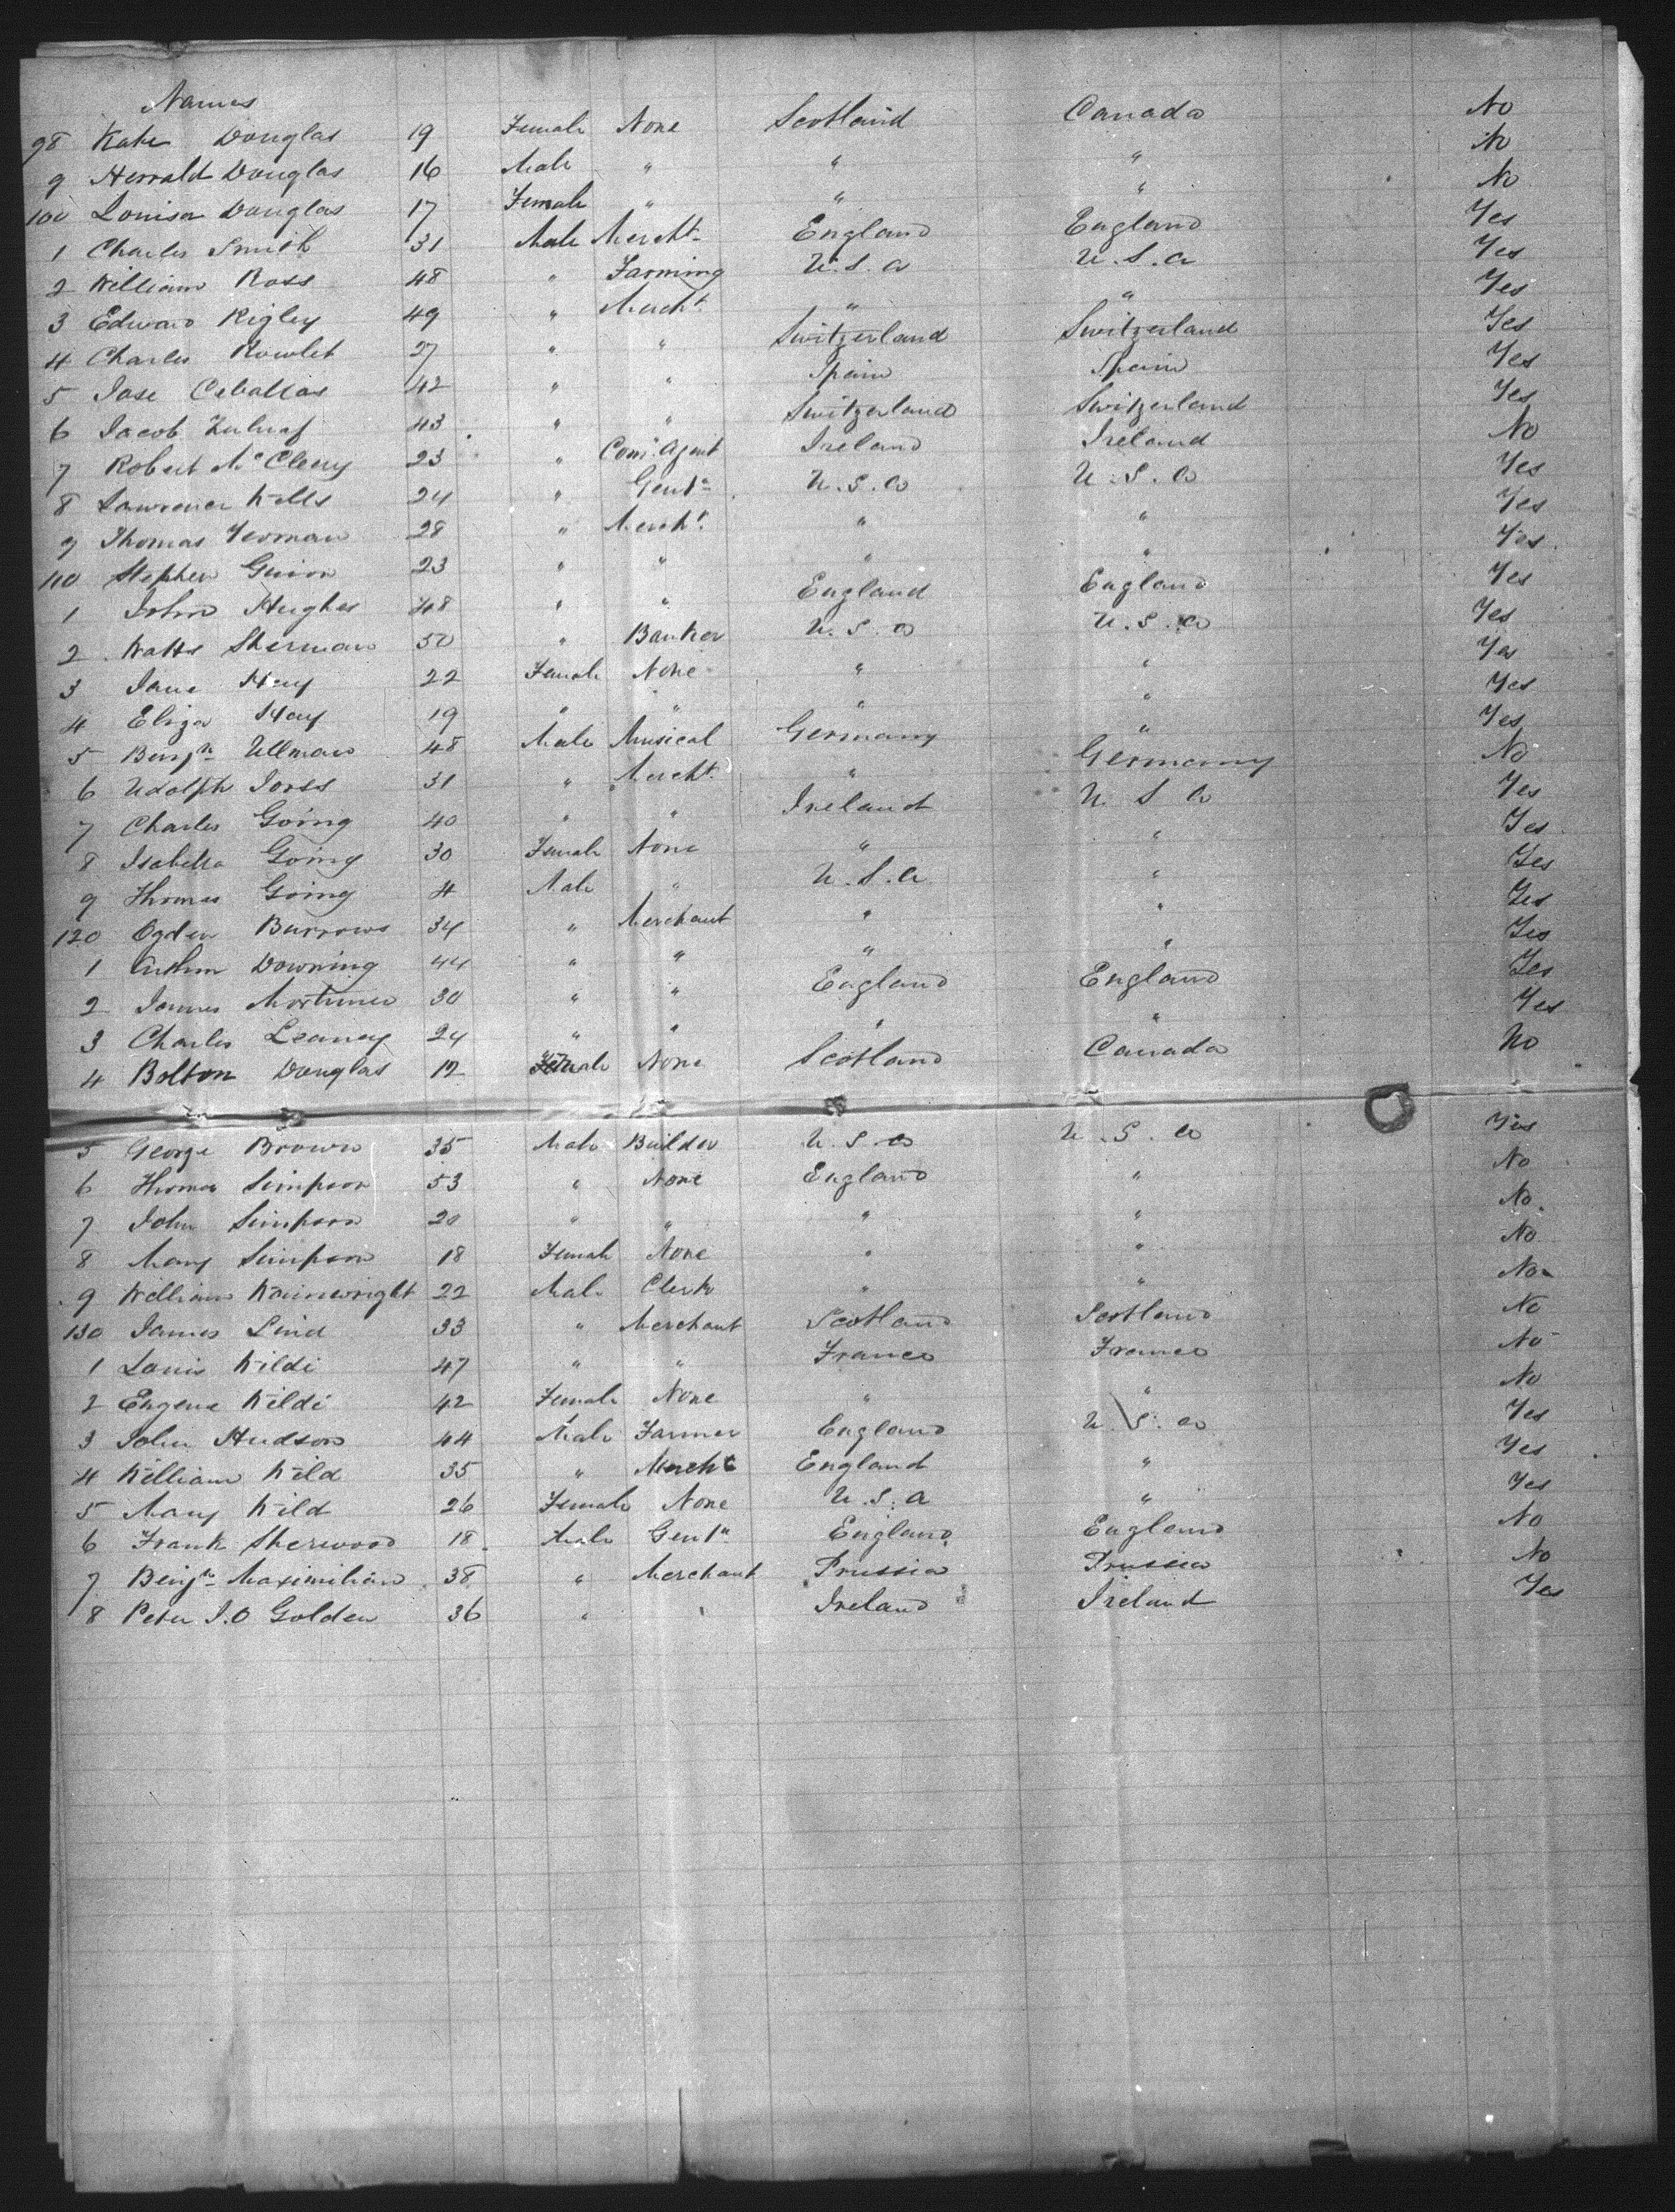 Names
98 Kate Douglas 19 Female None Scotland Canada No
9 Herrald Douglas 16 Male " " " No
100 Louisa Douglas 17 Female " " " No
1 Charles Smith 31 Male Mercht England England Yes
2 William Ross 48 " Farming U.S.a U.S.a Yes
3 Edward Rigley 49 " Mercht " " Yes
4 Charles Rowlet 27 " " Switzerland Switzerland Yes
5 Jose Ceballas 42 " " Spain Spain Yes
6 Jacob 43 " " Switzerland Switzerland Yes
7 Robert McCleny 23 " Com. Agent Ireland Ireland No
8 Lawrence Wells 24 " Gentn U.S.a U.S.a Yes
9 Thomas Yeoman 28 " Mercht " " Yes
110 Stephen Guion 23 " " " " Yes
1 John Hughes 48 " " England England Yes
2 Watts Sherman 50 " Banker U.S.a U.S.a Yes
3 Jane Hay 22 Female None " " Yes
4 Eliza Hay 19 " " " " Yes
5 Benjn Ullman 48 Male Musical Germany " Yes
6 Adolph Joess 31 " Mercht " Germany No
7 Charles Going 40 " " Ireland U S a Yes
8 Isabella Going 30 Female None " " Yes
9 Thomas Going 4 Male " U.S.a " Yes
120 Ogden Burrows 34 " Merchant " " Yes
1 Downing 44 " " " " Yes
2 James Mortimer 30 " " England England Yes
3 Charles Leaney 24 " " " " Yes
4 Bolton Douglas 12 Male None Scotland Canada No
5 George Brown 35 Male Builder U.S.a U.S.a Yes
6 Thomas Simpson 53 " None England " No
7 John Simpson 20 " " " " No
8 Mary Simpson 18 Female None " " No
9 William Wainwright 22 Male Clerk " " No
130 James Lind 33 " Merchant Scotland Scotland No
1 Louis Wildi 47 " " France France No
2 Eugene Wildi 42 Female None " " No
3 John Hudson 44 Male Farmer England U.S.a Yes
4 William Wild 35 " Mercht England " Yes
5 Mary Wild 26 Female None U.S.a " Yes
6 Frank Sherwood 18 Male Gentn England England No
7 Benjn Maximilian 38 " Merchant Prussia Prussia No
8 Peter J.O Golden 36 " " Ireland Ireland Yes